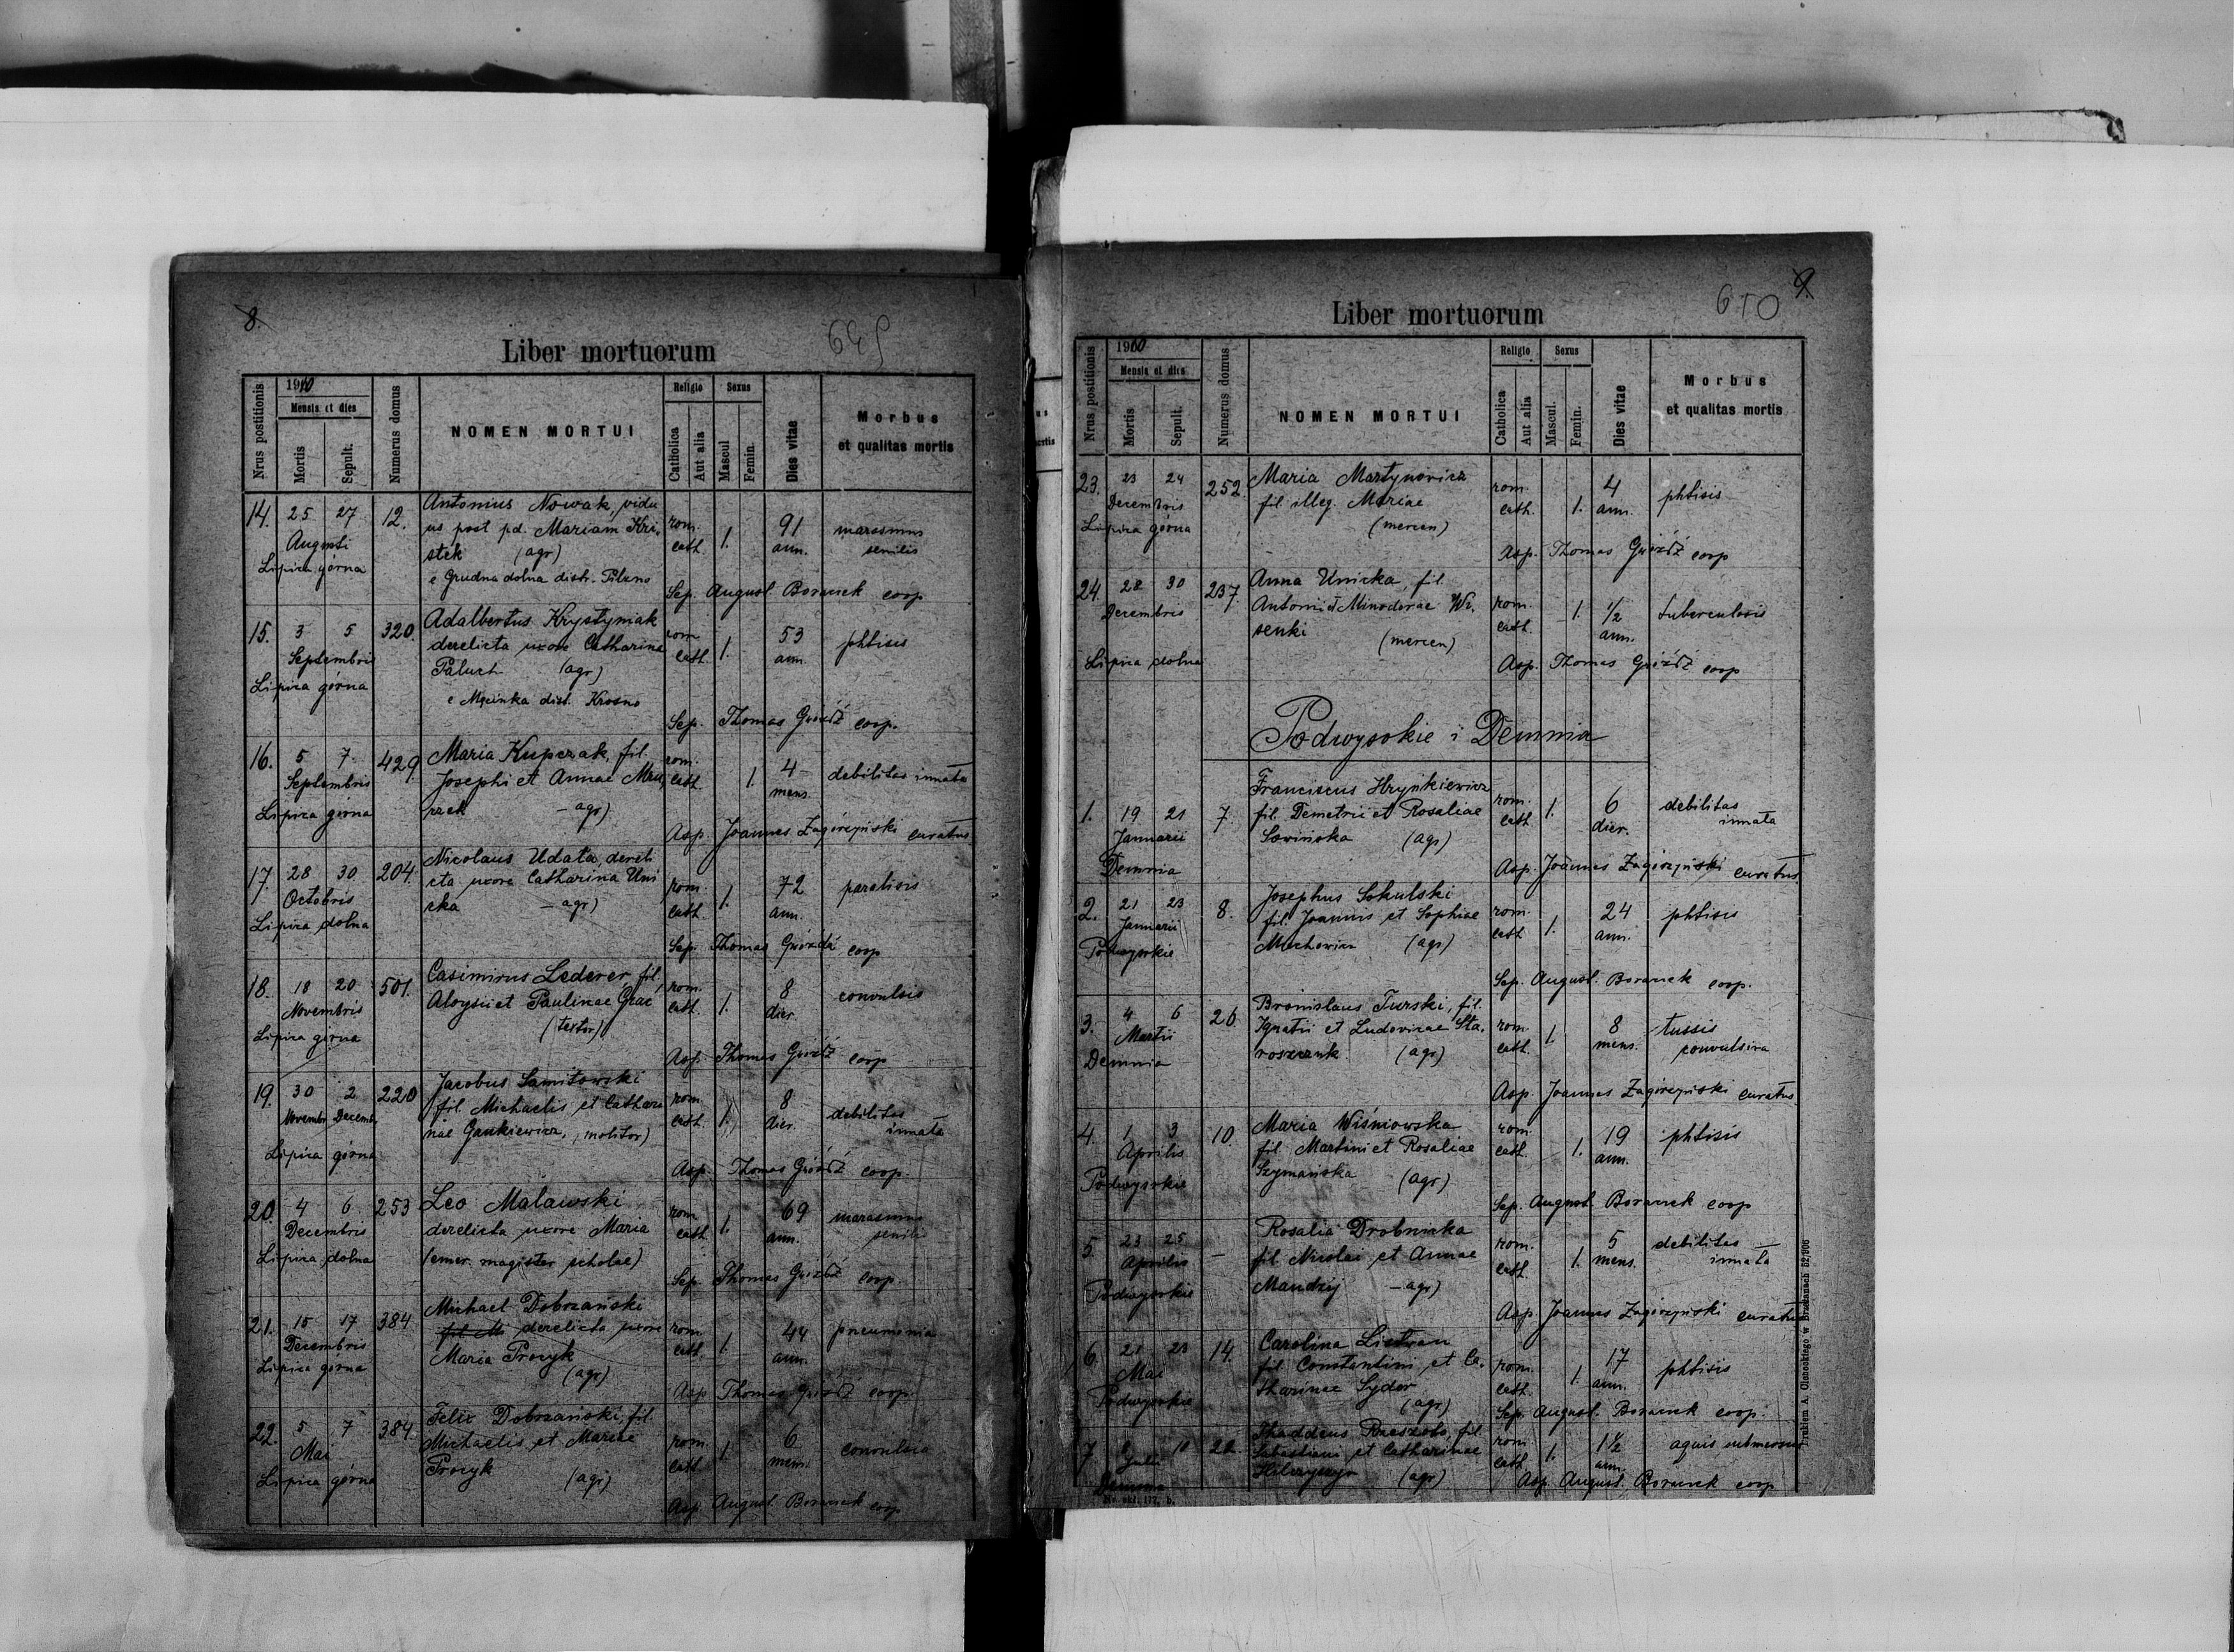 8.
649
Liber mortuorum
Nrus postitionis
1910
Mensis et dies
Mortis
Sepult.
Numerus domus
NOMEN MORTUI
Religio
Catholica
Aut alia
Sexus
Mascul
Femin.
Dies vitae
Morbus
et qualitas mortis
14. 25 27 12. Antonius Nowak, vidu
us post pd. Mariam Kri,
stek (agr)
Augusti
Lipica górna
e Grudna dolna distr. Pilzno
rom. cath. 1. 91 ann. marasmus senilis
Sep. August Boranek coop
15. 3 5 320. Adalbertus Krystyniak
derelicta uxore Catharina
Paluch (agr)
Septembris
Lipica górna
e Męcinka dist. Krosno
rom cath. 1. 53 ann. phtisis
Sep. Thomas Gwóźdź coop.
16. 5 7 429. Maria Kupczak, fil.
Josephi et Annae Mru,
czek - agr)
Septembris
Lipica górna
rom. cath. 1. 4 mens. debilitas innata
Asp. Joannes Zagórzyński curatus
17. 28 30 204. Nicolaus Udata, dereli
cta uxore Catharina Uni
cka - agr)
Octobris
Lipica dolna
rom. cath. 1. 72 ann. paralisis
Sep. Thomas Gwóźdź coop
18. 18 20 501. Casimirus Lederer, fil.
Aloysii et Paulinae Grac
(textor)
Novembris
Lipica górna
rom. cath. 1. 8 dier. convulsis
Asp. Thomas Gwóźdź coop
19. 30 2 220 Jacobus
fil. Michaelis et Cathari
nae Gankiewicz, (molitor)
Novembr Decemb.
Lipica górna
rom. cath. 1. 8 dier. debilitas innata
Asp. Thomas Gwóźdź coop.
20. 4 6 253 Leo Malawski
derelicta uxore Maria
(emer. magister scholae)
Decembris
Lipica dolna
rom cath. 1. 69 ann. marasmus senilis
Sep. Thomas Gwóźdź coop.
21. 15 17 384 Michael Dobrzański
fil. Mi derelicta uxore
Maria Procyk
(agr)
Decembris
Lipica górna
rom cath. 1. 44 ann. pneumonia
Asp Thomas Gwóźdź coop.
22. 5 7 384. Felix Dobrzański, fil.
Michaelis et Mariae
Procyk (agr)
Mai
Lipica górna
rom. cath. 1. 6 mens. convulsio
Asp. August. Boranek coop
9.
650
Liber mortuorum
Nrus postitionis
1910
Mensis et dies
Mortis
Sepult.
Numerus domus
NOMEN MORTUI
Religio
Catholica
Aut alia
Sexus
Mascul.
Femin.
Dies vitae
Morbus
et qualitas mortis
23. 23 24 252. Maria Martynowicz
fil. illeg. Mariae
(mercen)
Decembris
Lipica górna
rom. cath. 1. 4 ann. phtisis
Asp. Thomas Gwóźdź coop
24. 28 30 237. Anna Unicka, fil.
Antonii et Minodorae Wi,
senki (mercen)
Decembris
Lipica dolna
rom. cath. 1. 1/2 ann. tuberculosis
Asp. Thomas Gwóźdź coop
Podwysokie i Demnia
1. 19 21 7. Franciscus Hrynkiewicz
fil. Demetrii et Rosaliae
Sawińska (agr)
Januarii
Demnia
rom. cath 1. 6 dier. debilitas innata
Asp. Joannes Zagórzyński curatus.
2. 21 23 8. Josephus Sokulski
fil. Joannis et Sophiae
Muchowicz (agr)
Januarii
Podwysokie
rom. cath 1. 24 ann. phtisis
Sep. August. Boranek coop.
3. 4 6 26. Bronislaus Turski, fil.
Ignatii et Ludovicae Sta,
roszczuk (agr)
Martii
Demnia
rom. cath. 1. 8 mens. tussis convulsiva
Asp. Joannes Zagórzyński curatus.
4. 1 3 10. Maria Wiśniowska
fil. Martini et Rosaliae
Szymańska (agr)
Aprilis
Podwysokie
rom. cath. 1. 19 ann. phtisis
Sep. August. Boranek coop
5. 23 25 - Rosalia Drobnicka
fil. Nicolai et Annae
Mandzij - agr)
Aprilis
Podwysokie
rom. cath. 1. 5 mens. debilitas innata
Asp. Joannes Zagórzyński curatus
6. 21 23 14. Carolina Lietwan
fil. Constantini et Ca,
tharinae Sydor
(agr)
Mai
Podwysokie
rom. cath. 1. 17 ann. phtisis
Sep. August. Boranek coop.
7 10 22. Thaddeus Rzeszoto, fil.
Sebastiani et Catharinae
(agr)
Julii
Demnia
rom cath 1. 1 1/2 ann. aquis submersus
Asp. August. Boranek coop
Drukiem A. Cieńskiego w Brzeżanach 52/906